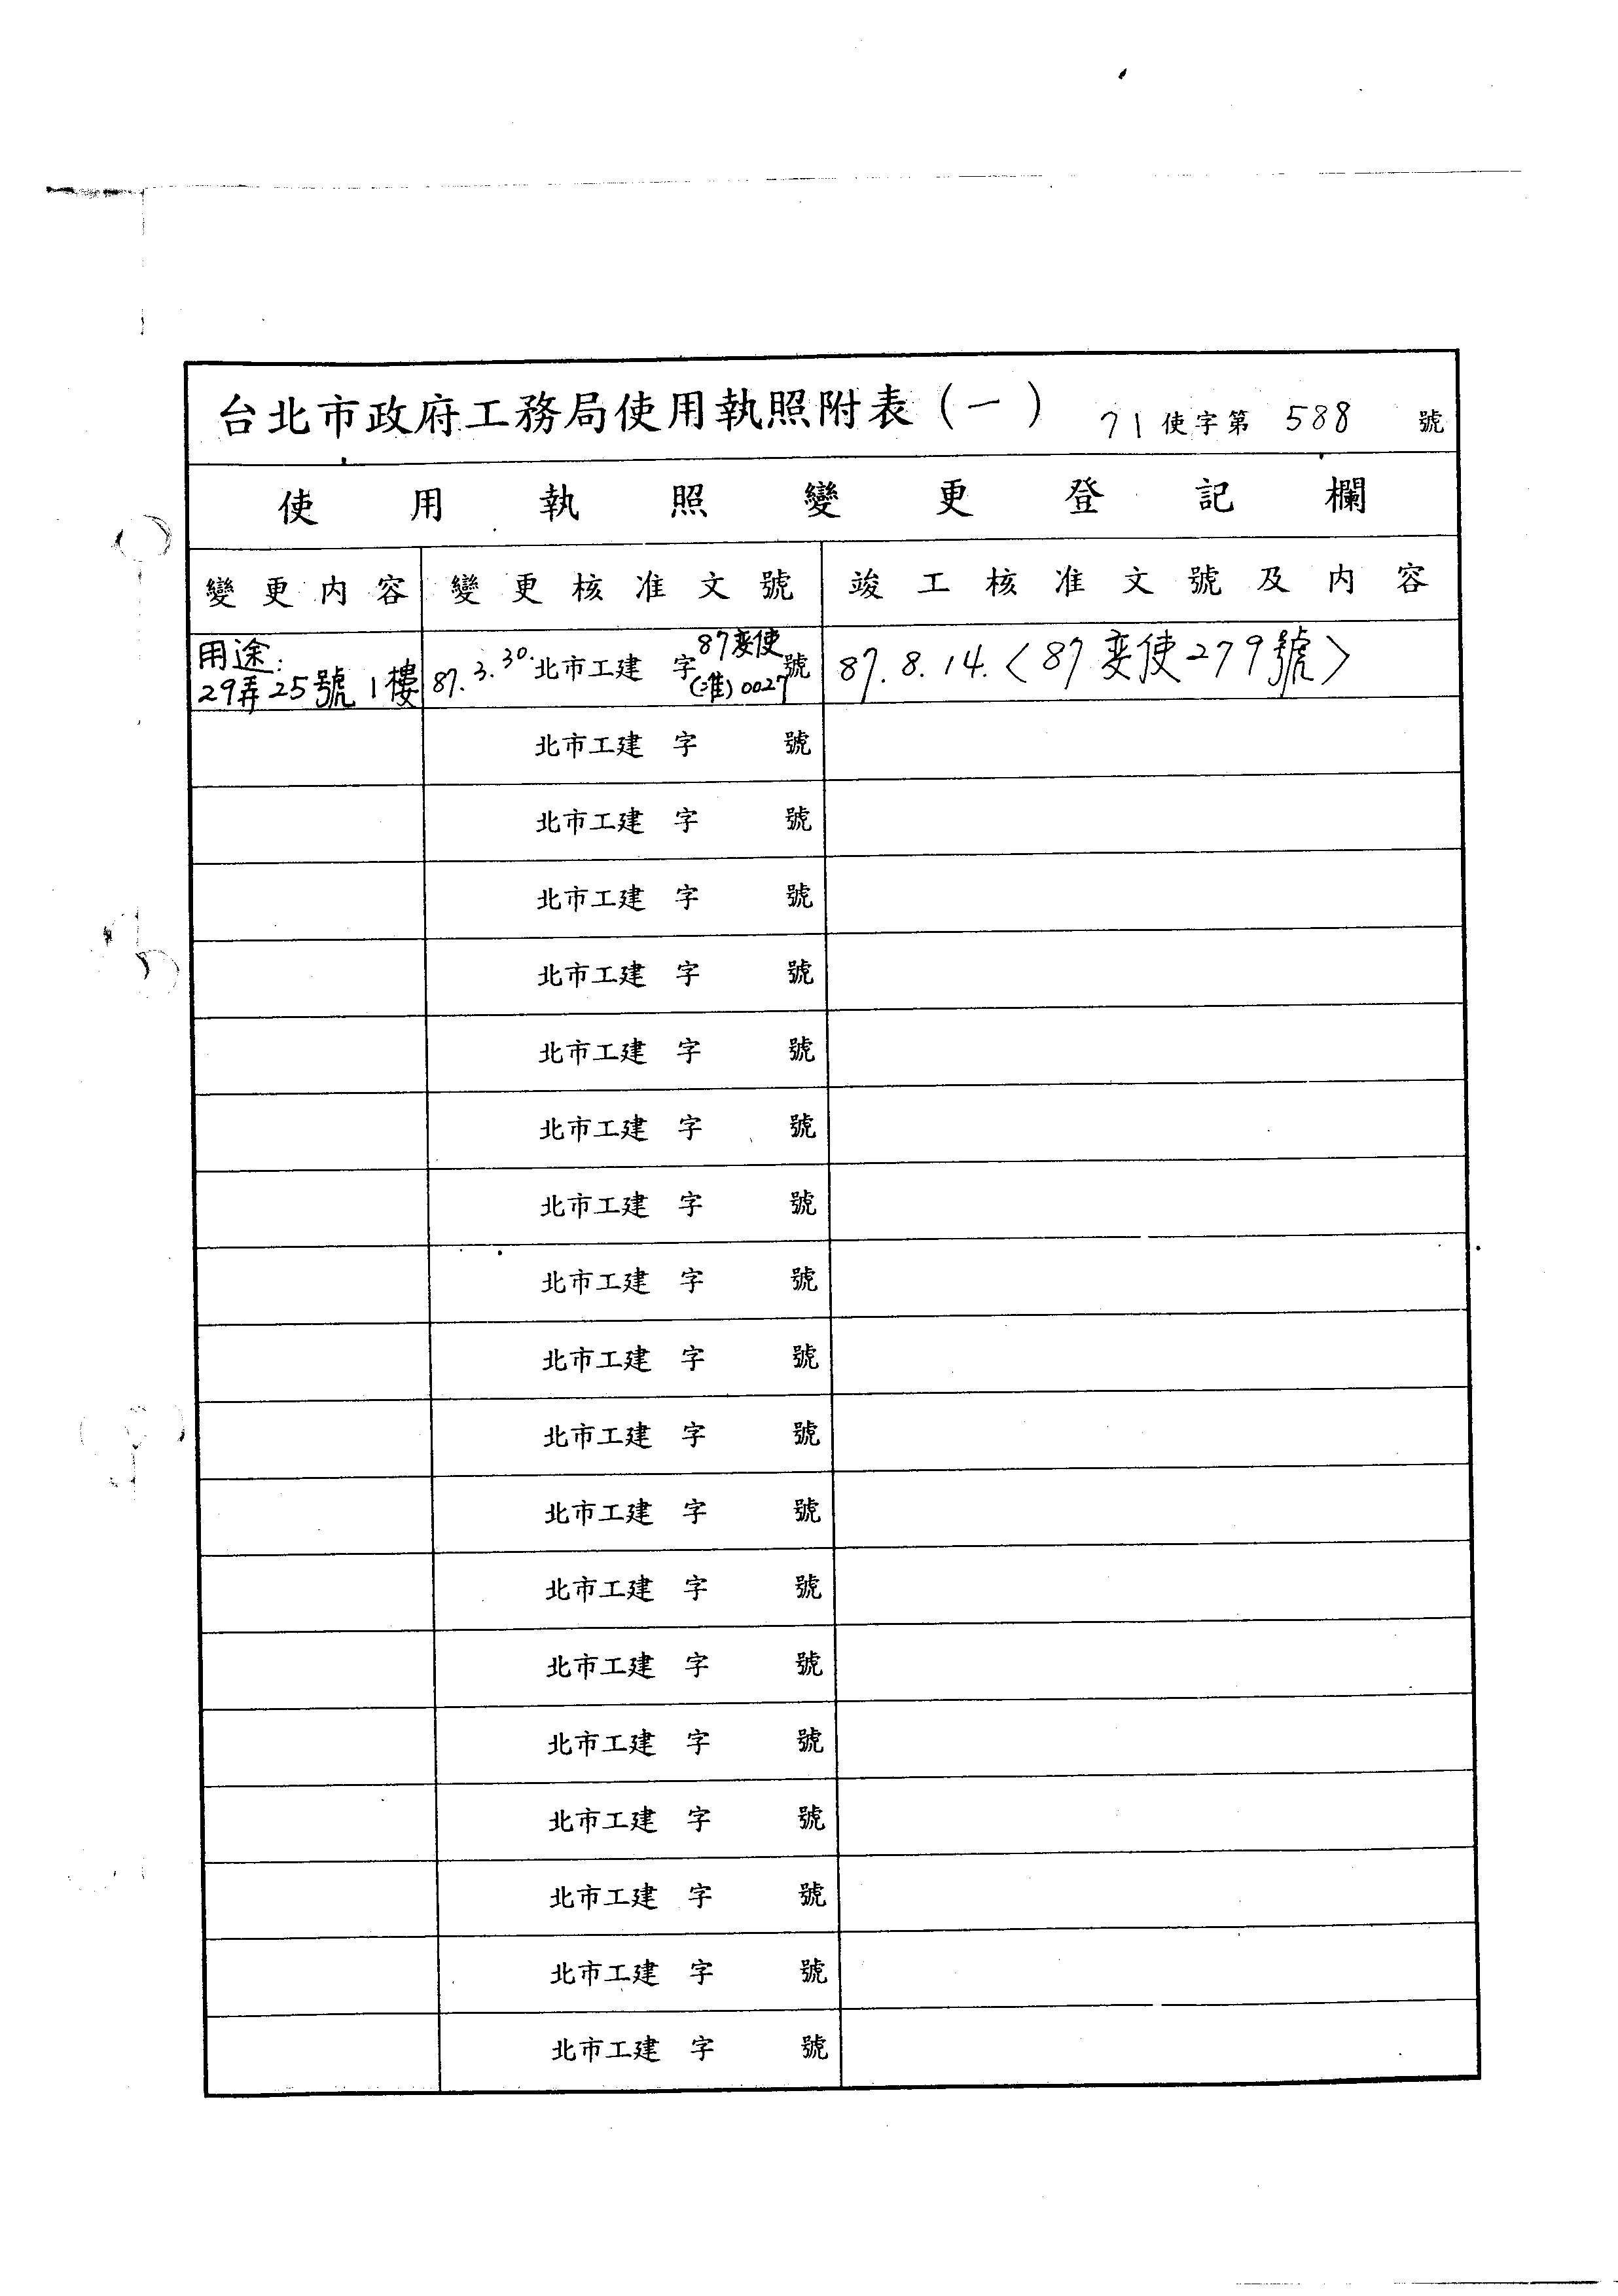 台北市政府工務局使用執照附表（一） 71使字第 588 號
使用執照變更登記欄
變更內容 變更核准文號 竣工核准文號及內容
用途:
29弄25號1樓 87.3.30.北市工建 字 87変使(准)0027 號 87.8.14.〈87変使279號〉
北市工建 字 號
北市工建 字 號
北市工建 字 號
北市工建 字 號
北市工建 字 號
北市工建 字 號
北市工建 字 號
北市工建 字 號
北市工建 字 號
北市工建 字 號
北市工建 字 號
北市工建 字 號
北市工建 字 號
北市工建 字 號
北市工建 字 號
北市工建 字 號
北市工建 字 號
北市工建 字 號